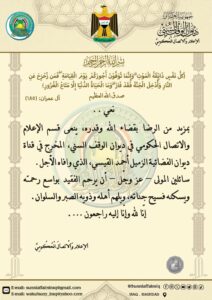 ديوان الوقف السني
الإعلام والاتصال الحكومي
بسم الله الرحمن الرحيم
﴿كُلُّ نَفْسٍ ذَائِقَةُ الْمَوْتِ وَإِنَّمَا تُوَفَّوْنَ أُجُورَكُمْ يَوْمَ الْقِيَامَةِ فَمَن زُحْزِحَ عَنِ
النَّارِ وَأُدْخِلَ الْجَنَّةَ فَقَدْ فَازَ وَمَا الْحَيَاةُ الدُّنْيَا إِلَّا مَتَاعُ الْغُرُورِ﴾
صدق الله العظيم
آل عمران: (١٨٥)
نعي ..
بمزيد من الرضا بقضاء الله وقدره، ينعى قسم الإعلام
والاتصال الحكومي في ديوان الوقف السني، المخرج في قناة
ديوان الفضائية الزميل أحمد القيسي، الذي وافاه الأجل .
سائلين المولى – عز وجل – أن يرحم الفقيد بواسع رحمته
ويسكنه فسيح جناته، ويلهم أهله وذويه الصبر والسلوان.
إنا لله وإنا إليه راجعون ....
الإعلام والاتصال الحكومي
E-mail: sunniaffairsiraq@gmail.com
@Sunniaffairsiraq
IRAQ _ BAGHDAD